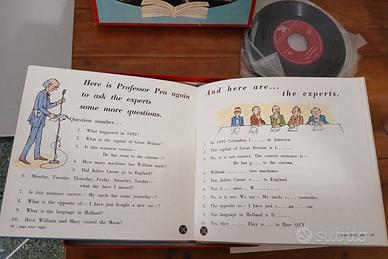 Here is Professor Pea again
to ask the experts
some more questions.
Question number...
1. What happened in 1492?
2. What is the capital of Great Britain?
3. Is this sentence correct—
He has went to the cinema—?
4. How many machines has William made?
5. Did Julius Caesar go to England?
6. Monday, Tuesday, Thursday, Friday, Saturday, Sunday—
what day have I missed?
7. Is this sentence correct— My uncle has come yesterday—?
8. What is the opposite of— I have just bought a new car—?
9. What is the language in Holland?
10. Have William and Mary visited the Moon?
And here are...
the experts.
1. In 1492 Columbus l
in America.
2. The capital of Great Britain is L
3. No, it is not correct. The correct sentence is—
He has g
to the cinema.
4. William
two machines.
5. Yes, Julius Caesar w
to England.
6. You h
miss
W
7. No, it is not. We say— My uncle c
yesterday.
8. The opposite is— I have just s
an
car.
9. The language in Holland is D
10. Yes, they
They w
to Bass QZY.
Subito